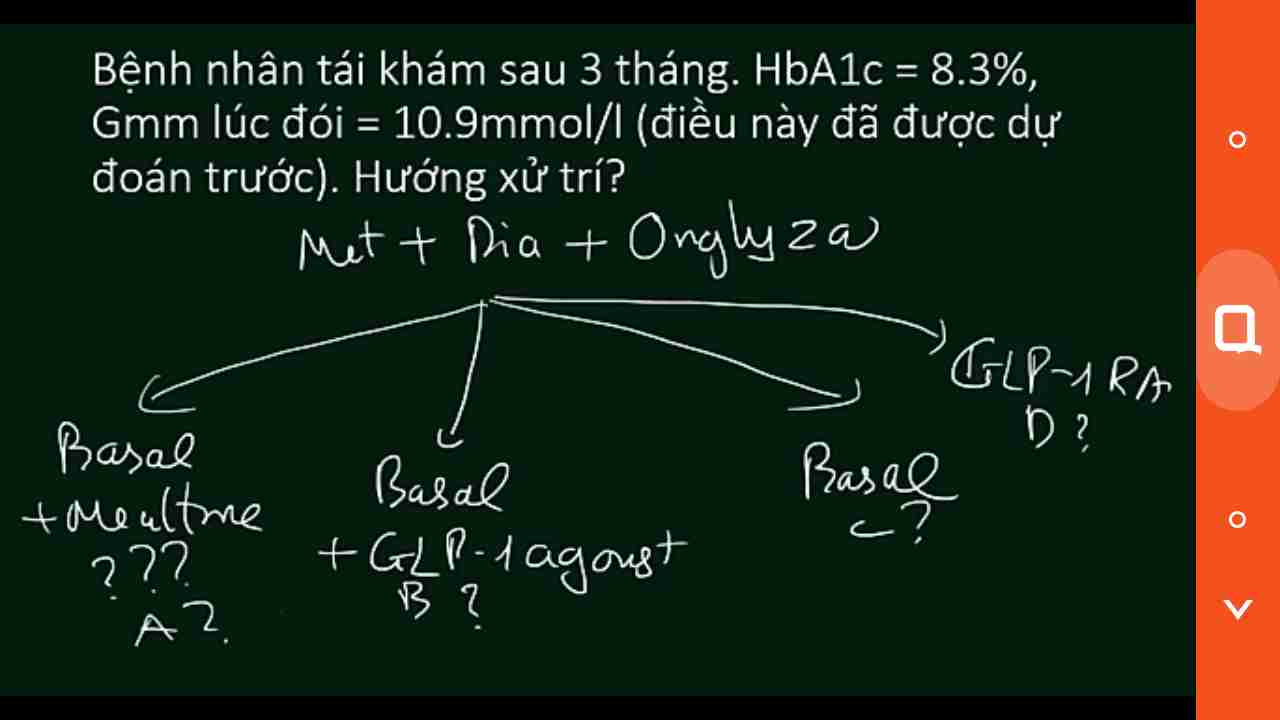 Bệnh nhân tái khám sau 3 tháng. HbA1c = 8.3%,
Gmm lúc đói = 10.9mmol/l (điều này đã được dự
đoán trước). Hướng xử trí?
Met + Dia + Onglyza
GLP-1 RA
D ?
Basal
+ Mealtme
???
A ?
Basal
+ GLP-1 agonst
B ?
Basal
C ?